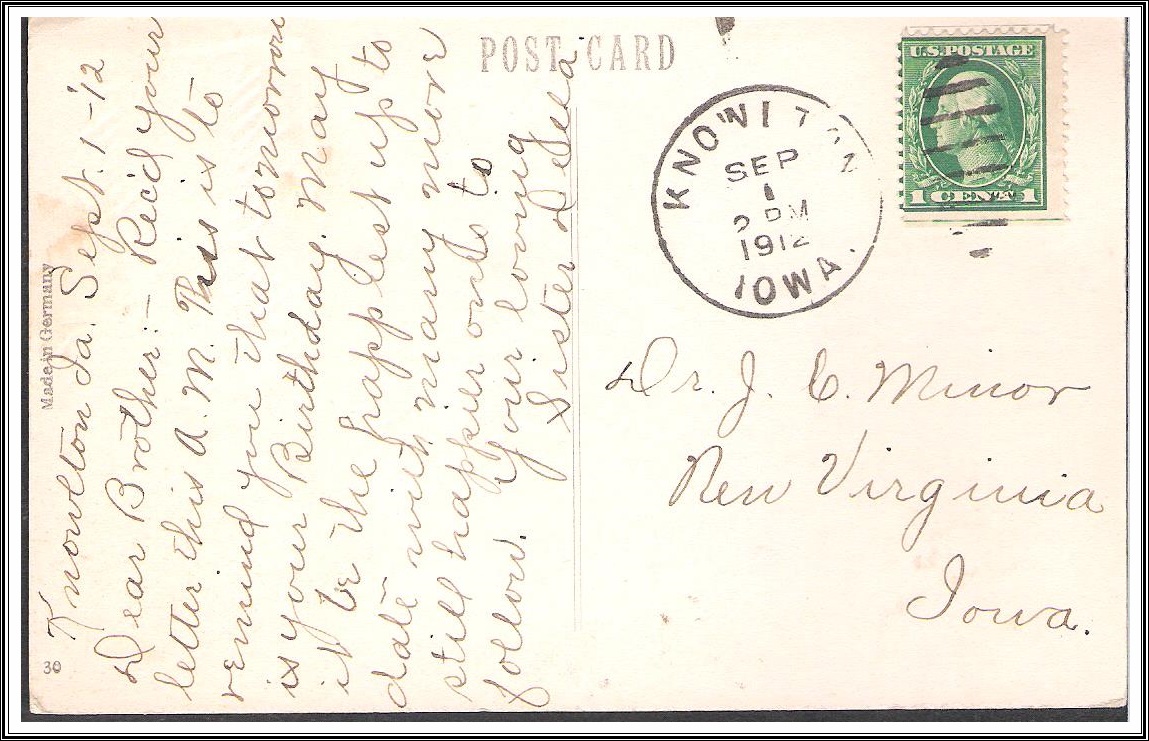 POST CARD
U.S. POSTAGE
1 CENT 1
KNOWLTON
SEP
1
PM
1912
IOWA.
Made in Germany
30
Knowlton Ia. Sept. 1-'12
Dear Brother:- Rec'd your
letter this A.M. This is to
remind you that tomorrow
is your Birthday. May
it be the happiest up to
date with many more
still happier ones to
follow. Your loving
Sister Della
Dr. J. C. Minor
New Virginia
Iowa.